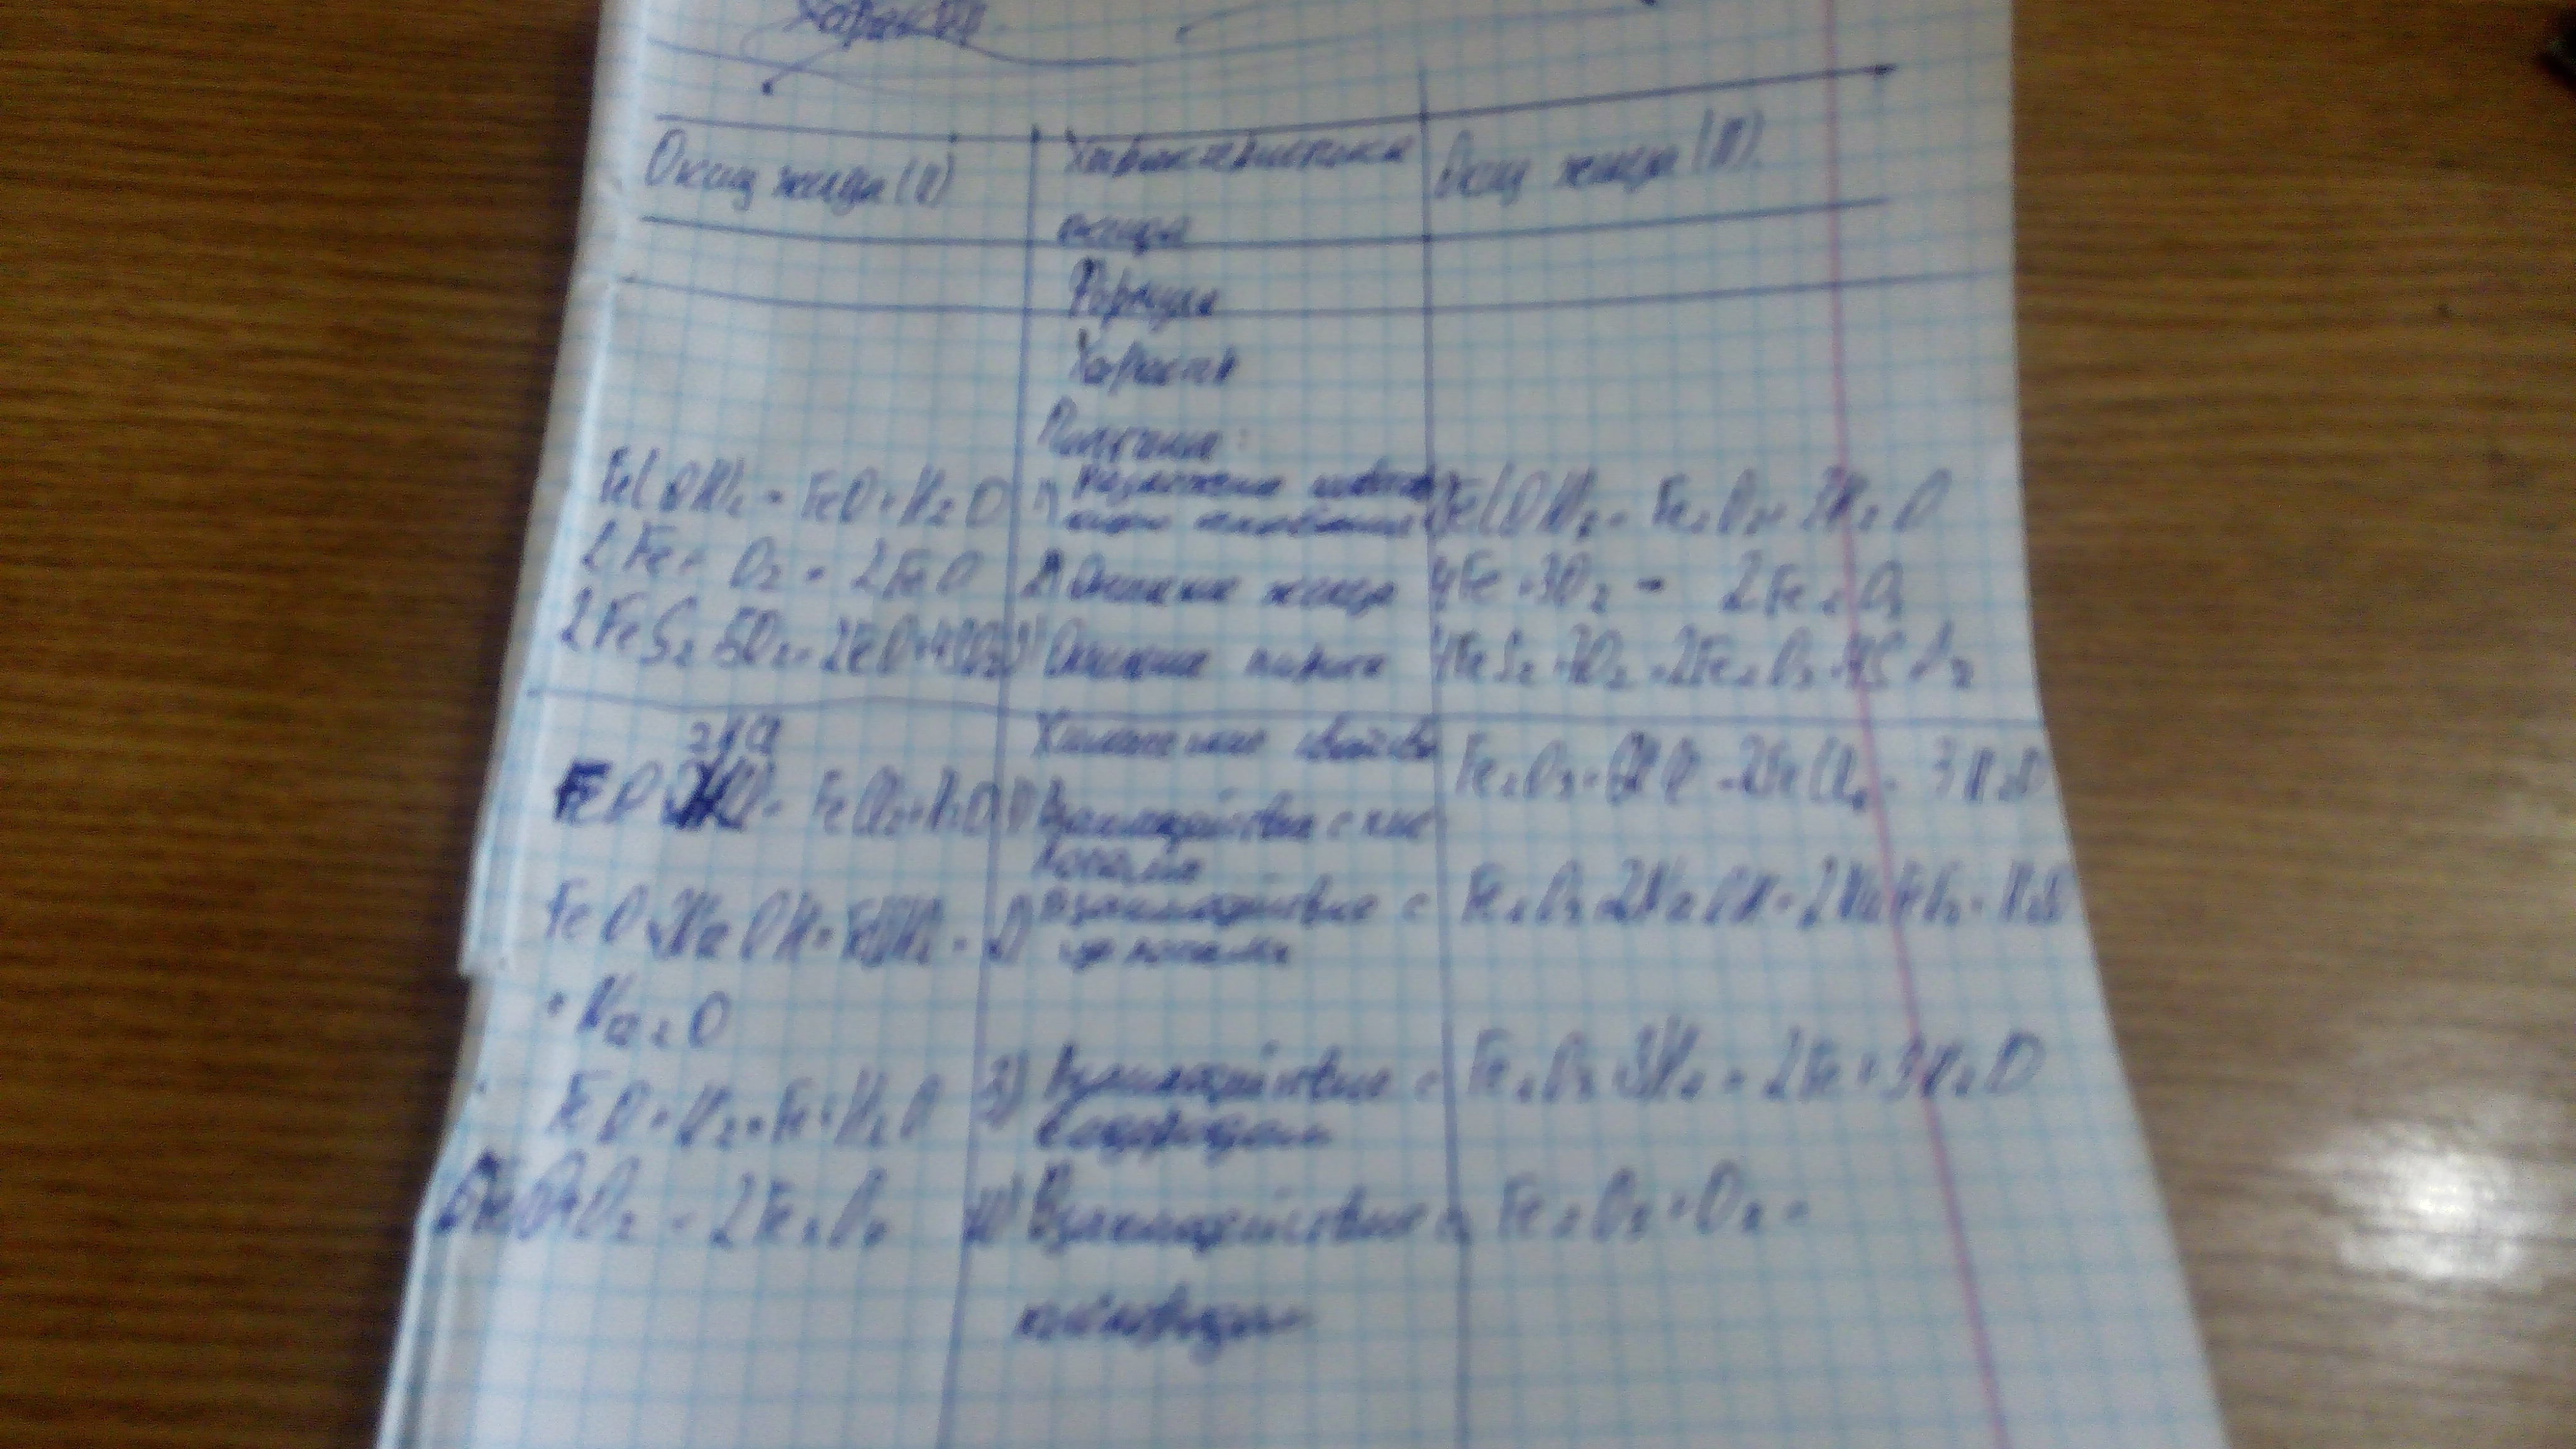 Характер
Оксид железа (II)
Характеристика
оксида
Оксид железа (III)
Формула
Характер
Получение:
Fe(OH)2 = FeO + H2O
1) Разложение
основания
Fe(OH)3 = Fe2O3 + 3H2O
2Fe + O2 = 2FeO
2) Окисление железа
4Fe + 3O2 = 2Fe2O3
2FeS2 + 5O2 = 2FeO + 4SO2
3) Окисление пирита
4FeS2 + 7O2 = 2Fe2O3 + 4SO2
Химические свойства
2HCl
FeO = FeCl2 + H2O
1) Взаимодействие с кис
лотами
Fe2O3 + 6HCl = 2FeCl3 + 3H2O
FeO + 2NaOH = Fe(OH)2 +
2) Взаимодействие с
щелочами
Fe2O3 + 2NaOH = 2NaFeO2 + H2O
+ Na2O
FeO + H2 = Fe + H2O
3) Взаимодействие с
водородом
Fe2O3 + 3H2 = 2Fe + 3H2O
O2 = 2Fe2O3
4) Взаимодействие с
кислородом
Fe2O3 + O2 =